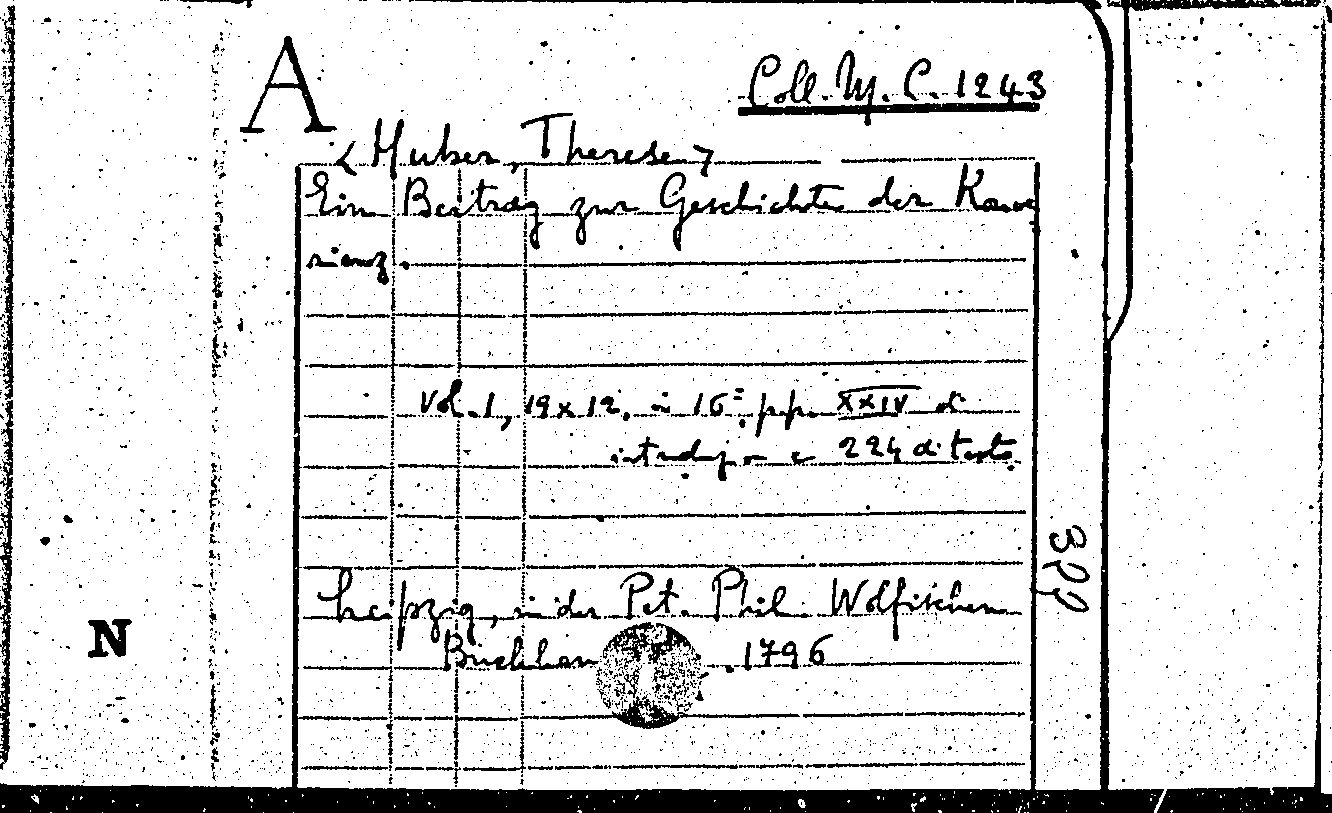 A
Coll. M. C. 1243
<Huber, Therese>
Ein Beitrag zur Geschichte der
Vol. 1, 19x12, in 16° pp. XXIV di
introduzione e 224 di testo.
Leipzig, in der Pet. Phil. Wolfischen
.1796
N